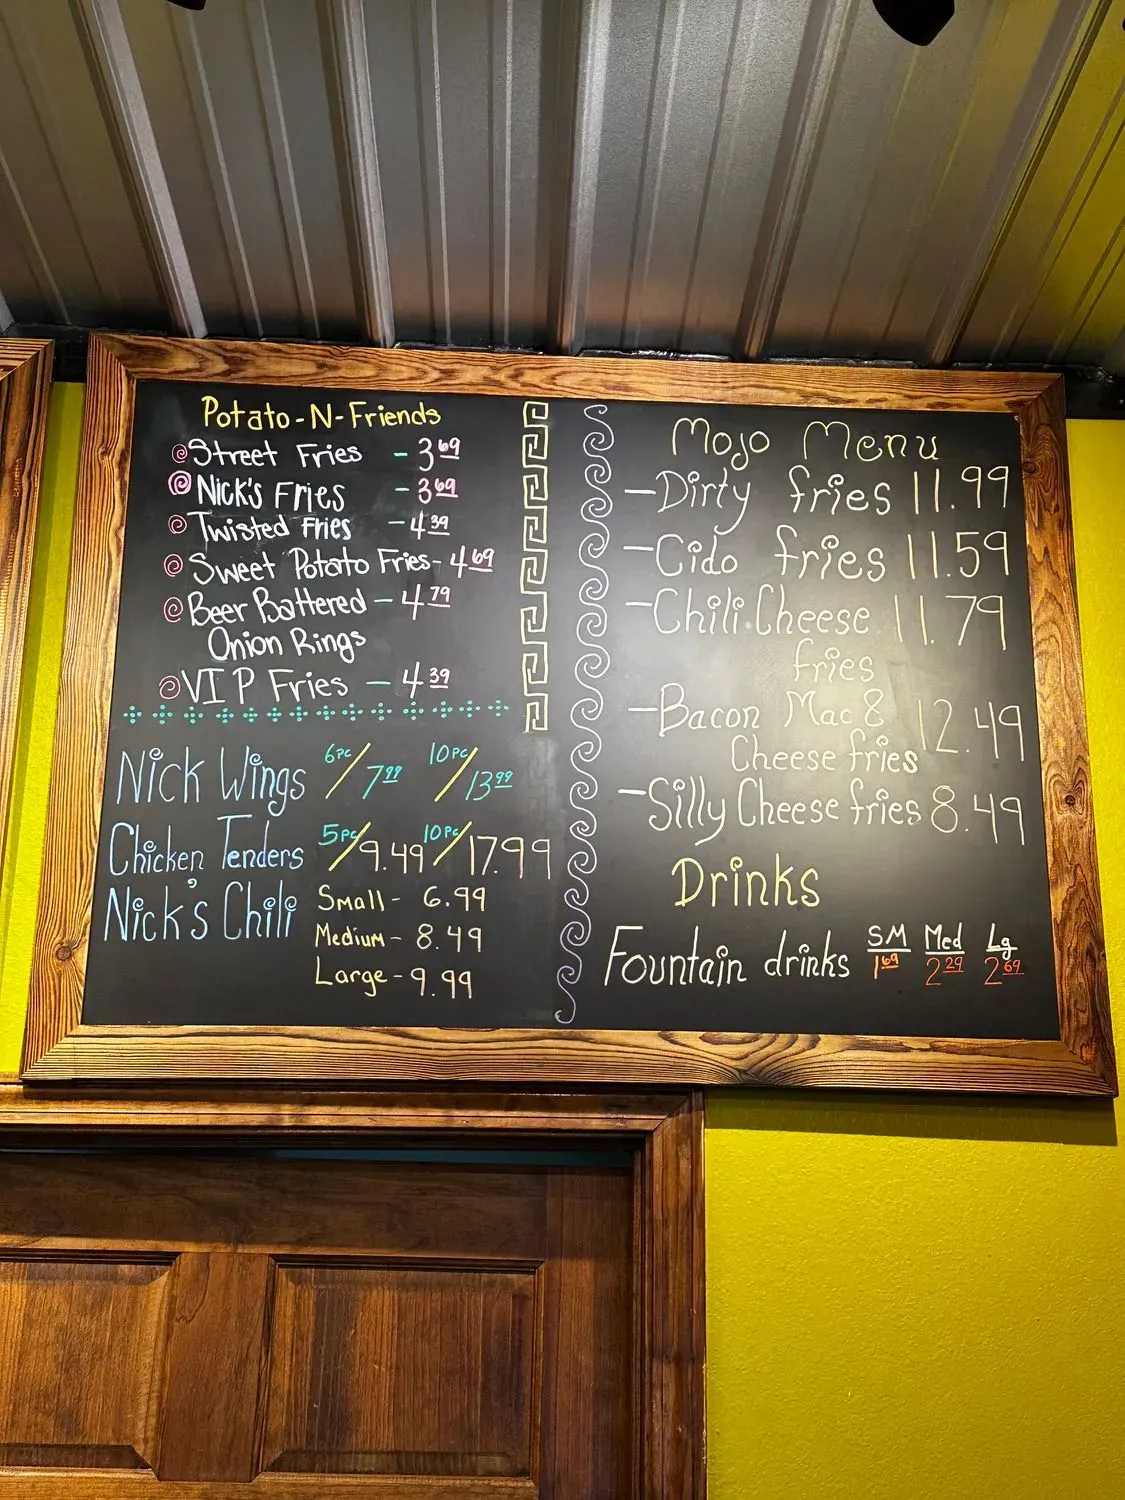 Potato-N-Friends
Street Fries - 3 69
Nick's Fries - 3 69
Twisted Fries - 4 39
Sweet Potato Fries - 4 69
Beer Battered - 4 79
Onion Rings
VIP Fries - 4 39
Nick Wings 6pc/7 99 10pc/13 99
Chicken Tenders 5pc/9.49 10pc/17.99
Nick's Chili Small - 6.99
Medium - 8.49
Large - 9.99
Mojo Menu
- Dirty fries 11.99
- Cido fries 11.59
- Chili.Cheese 11.79
fries
- Bacon Mac & 12.49
Cheese fries
- Silly Cheese fries 8.49
Drinks
SM Med Lg
Fountain drinks 1 69 2 29 2 69